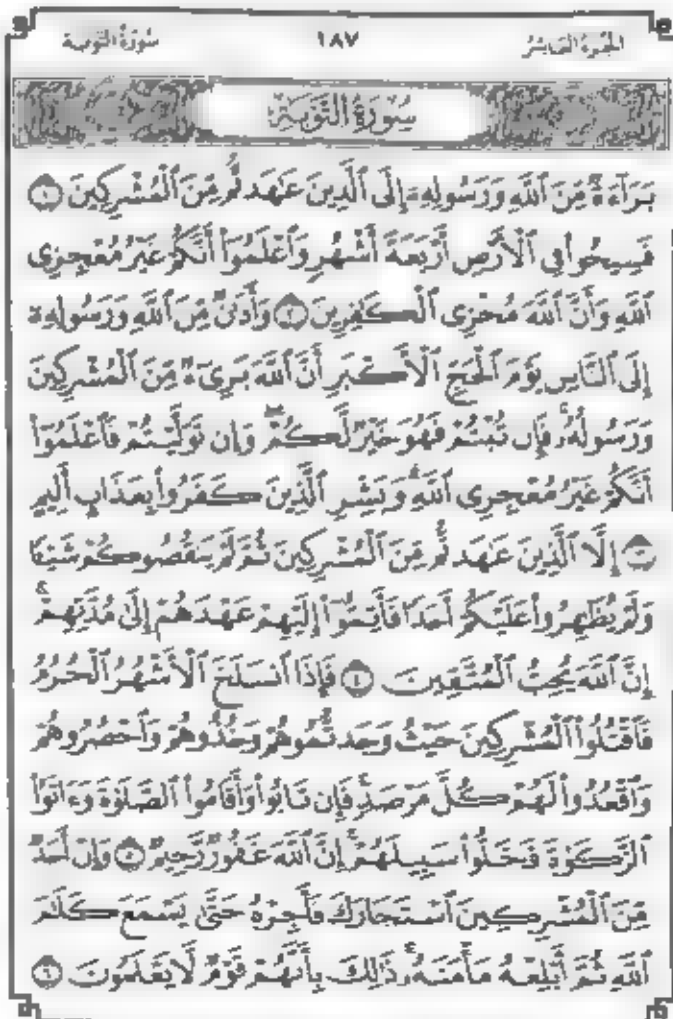 سُورَةُ التَّوْبَةِ ١٨٧ الجُزْءُ العَاشِرُ
سُورَةُ التَّوْبَةِ
بَرَآءَةٌ مِّنَ ٱللَّهِ وَرَسُولِهِۦٓ إِلَى ٱلَّذِينَ عَٰهَدتُّم مِّنَ ٱلْمُشْرِكِينَ ١
فَسِيحُوا۟ فِى ٱلْأَرْضِ أَرْبَعَةَ أَشْهُرٍ وَٱعْلَمُوٓا۟ أَنَّكُمْ غَيْرُ مُعْجِزِى
ٱللَّهِ وَأَنَّ ٱللَّهَ مُخْزِى ٱلْكَٰفِرِينَ ٢ وَأَذَٰنٌ مِّنَ ٱللَّهِ وَرَسُولِهِۦٓ
إِلَى ٱلنَّاسِ يَوْمَ ٱلْحَجِّ ٱلْأَكْبَرِ أَنَّ ٱللَّهَ بَرِىٓءٌ مِّنَ ٱلْمُشْرِكِينَ
وَرَسُولُهُۥ فَإِن تُبْتُمْ فَهُوَ خَيْرٌ لَّكُمْ وَإِن تَوَلَّيْتُمْ فَٱعْلَمُوٓا۟
أَنَّكُمْ غَيْرُ مُعْجِزِى ٱللَّهِ وَبَشِّرِ ٱلَّذِينَ كَفَرُوا۟ بِعَذَابٍ أَلِيمٍ
٣ إِلَّا ٱلَّذِينَ عَٰهَدتُّم مِّنَ ٱلْمُشْرِكِينَ ثُمَّ لَمْ يَنقُصُوكُمْ شَيْـًٔا
وَلَمْ يُظَٰهِرُوا۟ عَلَيْكُمْ أَحَدًا فَأَتِمُّوٓا۟ إِلَيْهِمْ عَهْدَهُمْ إِلَىٰ مُدَّتِهِمْ
إِنَّ ٱللَّهَ يُحِبُّ ٱلْمُتَّقِينَ ٤ فَإِذَا ٱنسَلَخَ ٱلْأَشْهُرُ ٱلْحُرُمُ
فَٱقْتُلُوا۟ ٱلْمُشْرِكِينَ حَيْثُ وَجَدتُّمُوهُمْ وَخُذُوهُمْ وَٱحْصُرُوهُمْ
وَٱقْعُدُوا۟ لَهُمْ كُلَّ مَرْصَدٍ فَإِن تَابُوا۟ وَأَقَامُوا۟ ٱلصَّلَوٰةَ وَءَاتَوُا۟
ٱلزَّكَوٰةَ فَخَلُّوا۟ سَبِيلَهُمْ إِنَّ ٱللَّهَ غَفُورٌ رَّحِيمٌ ٥ وَإِنْ أَحَدٌ
مِّنَ ٱلْمُشْرِكِينَ ٱسْتَجَارَكَ فَأَجِرْهُ حَتَّىٰ يَسْمَعَ كَلَٰمَ
ٱللَّهِ ثُمَّ أَبْلِغْهُ مَأْمَنَهُۥ ذَٰلِكَ بِأَنَّهُمْ قَوْمٌ لَّا يَعْلَمُونَ ٦